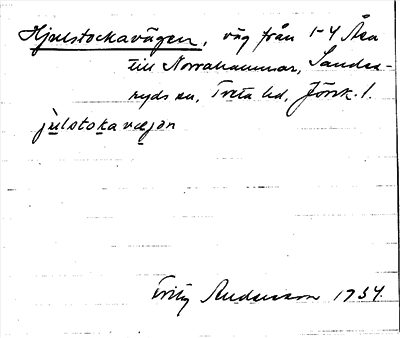 Hjulstockavägen, väg från 1-4 Åsa
till Norrahammar, Sandse-
ryds sn, Tveta hd, Jörsk. l.
julstokavæjən
Fritz Andersson 1934.